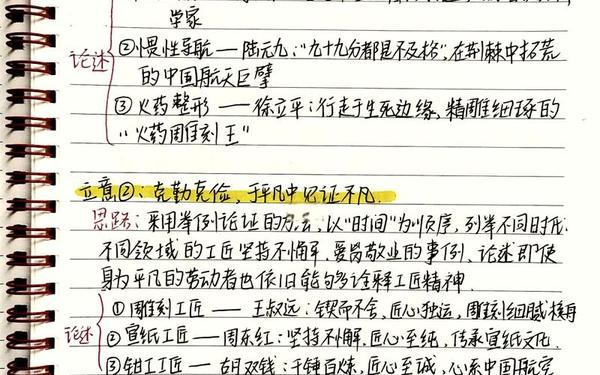 学家
论述
②惯性导航——陆元九:"九十九分都是不及格",在荆棘中拓荒
的中国航天巨擘
③火药整形——徐立平:行走于生死边缘,精雕细琢的
"火药雕刻王"
立意②:克勤克俭,于平凡中见证不凡.
思路:采用举例论证的方法,以"时间"为顺序,列举不同时代.
不同领域的工匠坚持不懈,爱岗敬业的事例,论述即使
身为平凡的劳动者也依旧能够多诠释工匠精神.
论述
①雕刻工匠——王叔远:锲而不舍,匠心独运,雕刻细腻核舟
②宣纸工匠——周东红:坚持不懈,匠心至纯,传承宣纸文化.
③钳工工匠——胡双钱:千锤百炼,匠心至诚,心系中国航空